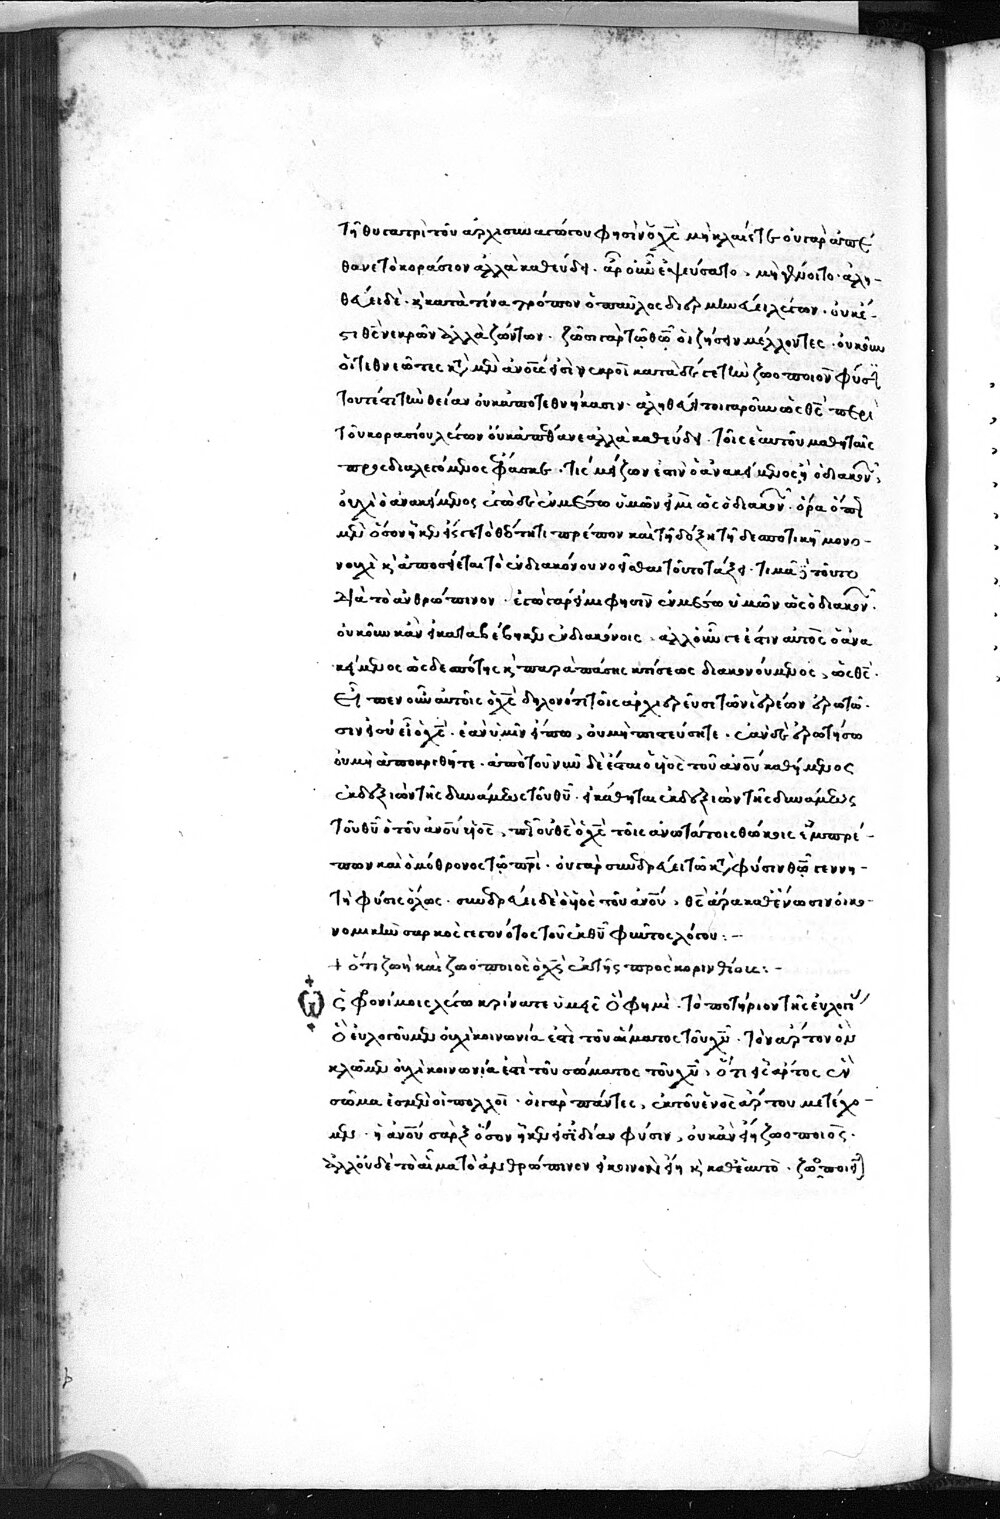 τῆ θυγατρὶ τοῦ ἀρχισυναγώγου φησὶν ὁ χς μὴ κλαίετε οὐ γὰρ ἀπέ
θανε τὸ κοράσιον ἀλλὰ καθεύδει · ἆρ οὖν ἐψεύσατο , μὴ γένοιτο · ἀλη-
θεύει δὲ · κ κατὰ τίνα τρόπον ὁ παῦλος διερμηνεύει λέγων · οὐκ ἔ-
στι θς νεκρῶν ἀλλὰ ζώντων · ζῶσι γὰρ τῶ θω οἱ ζήσειν μέλλοντες · οὐκοῦν
οἱ τεθνεῶτες κτ μὲν ἀνους εἰσὶ νεκροὶ κατὰ δέ γε τὴν ζωοποιὸν φύσιν
τουτέστι τὴν θείαν οὐκ ἀποτεθνήκασιν · ἀληθεύει τοιγαροῦν ὡς θς περὶ
τοῦ κορασίου λέγων οὐκ ἀπέθανε ἀλλὰ καθεύδει · τοῖς ἑαυτοῦ μαθηταῖς
προσδιαλεγόμενος ἔφασκε · τίς μείζων ἐστὶν ὁ ἀνακείμενος ἢ ὁ διακονῶν ,
οὐχὶ ὁ ἀνακείμενος ἐγὼ δὲ ἐν μέσω ὑμῶν εἰμὶ ὡς ὁ διακονῶν · ὅρα ὅπως
μὲν ὅσον ἧκεν εἴς γε τὸ θεότητι πρέπον καὶ τῆ δόξη τῆ δεσποτικῆ μονο-
νουχὶ κ ἀποσείεται τὸ ἐν διακόνου νοεῖσθαι τοῦτο τάξει · τιμᾶ τοῦτο
διὰ τὸ ἀνθρώπινον · ἐγὼ γάρ εἰμι φησὶν ἐν μέσω ὑμῶν ὡς ὁ διακονῶν ·
οὐκοῦν κἂν εἰ καταβέβηκεν ἐν διακόνοις , ἀλλ οὖν γέ ἐστιν αὐτὸς ὁ ἀνα
κείμενος ὡς δεσπότης κ παρὰ πάσης κτίσεως διακονούμενος , ὡς θς ·
εἶπεν οὖν αὐτοῖς ὁ χς δηλονότι τοῖς ἀρχιερεῦσι τῶν ἱερέων ἐρωτῶ-
σιν εἰ σὺ εἶ ὁ χς · ἐὰν ὑμῖν εἴπω , οὐ μὴ πιστεύσητε · ἐὰν δὲ ἐρωτήσω
οὐ μὴ ἀποκριθῆτε · ἀπὸ τοῦ νῦν δὲ ἔσται ὁ υἱὸς τοῦ ἀνου καθήμενος
ἐκ δεξιῶν τῆς δυνάμεως τοῦ θυ · εἰ κάθηται ἐκ δεξιῶν τῆς δυνάμεως
τοῦ θυ ὁ τοῦ ἀνου υἱὸς , πῶς οὐ θς ὁ χς τοῖς ἀνωτάτοις θώκοις ἐμπρέ-
πων καὶ ὁμόθρονος τῶ πρὶ · οὐ γὰρ συνεδρεύει τῶ κτ φύσιν θω γεννη-
τὴ φύσις ὅλως · συνεδρεύει δὲ ὁ υἱὸς τοῦ ἀνου , θς ἄρα καθ ἕνωσιν οἰκο-
νομικὴν σαρκὸς γεγονότος τοῦ ἐκ θυ φωτὸς λόγου : —
+ ὅτι ζωὴ καὶ ζωοποιὸς ὁ χς ἐκ τῆς πρὸς κορινθίους : —
ὡς φρονίμοις λέγω κρίνατε ὑμεῖς ὅ φημι · τὸ ποτήριον τῆς εὐλογίας
ὃ εὐλογοῦμεν οὐχὶ κοινωνία ἐστὶ τοῦ αἵματος τοῦ χυ · τὸν ἄρτον ὃν
κλῶμεν οὐχὶ κοινωνία ἐστὶ τοῦ σώματος τοῦ χυ , ὅτι εἷς ἄρτος ἓν
σῶμα ἐσμὲν οἱ πολλοὶ · οἱ γὰρ πάντες , ἐκ τοῦ ἑνὸς ἄρτου μετέχο-
μεν · ἡ ἀνου σὰρξ ὅσον ἧκεν εἰς ἰδίαν φύσιν , οὐκ ἂν εἴη ζωοποιὸς ·
ἀλλ οὐδὲ τὸ αἷμα τὸ ἀνθρώπινον εἰ κοινὸν εἴη κ καθ ἑαυτὸ · ζωοποιεῖ